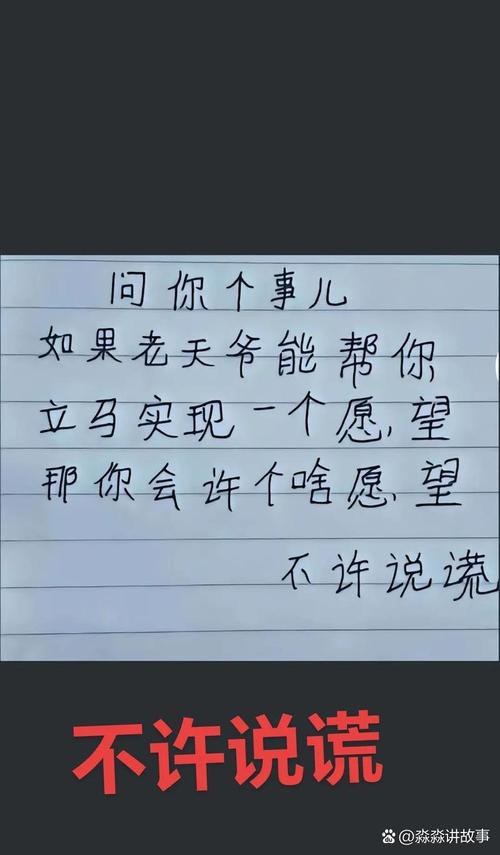 问你个事儿
如果老天爷能帮你
立马实现一个愿望
那你会许个啥愿望
不许说谎
不许说谎
@淼淼讲故事